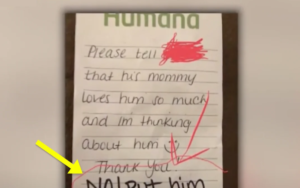 Humana
Please tell
that his mommy
loves him so much
and im thinking
about him
Thank you
put him